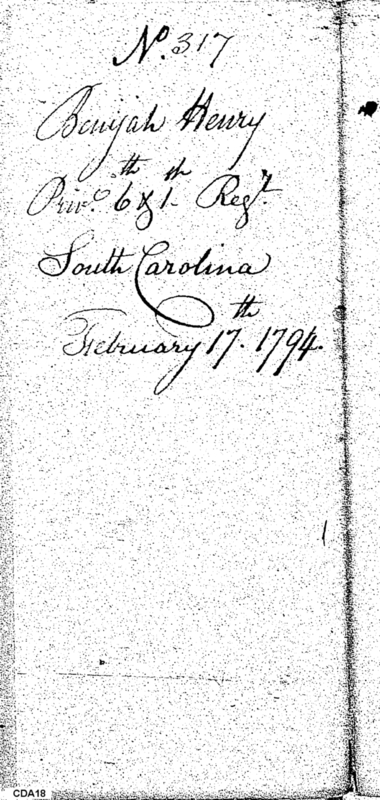 No. 317
Benijah Henry
Priv.o 6th & 1th Regt.
South Carolina
February 17th. 1794.
CDA18